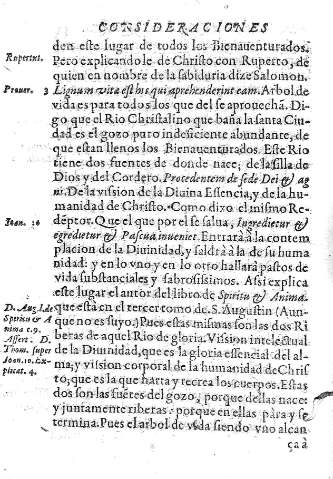 CONSIDERACIONES
den este lugar de todos los Bienauenturados.
Rupertus.
Pero explicandole de Christo con Ruperto, de
quien en nombre de la sabiduria dize Salomon.
Prouer. 3
Lignum vitæ est his qui aprehenderint eam. Arbol de
vida es para todos los que del se aprouechā. Di
go que el Rio Christalino que baña la santa Ciu
dad es el gozo puro indeficiente abundante, de
que estan llenos los Bienauenturados. Este Rio
tiene dos fuentes de donde nace; de la silla de
Dios y del Cordero. Procedentem de sede Dei & ag
ni. De la vission de la Diuina Essencia, y de la hu
manidad de Christo. Como dixo el mismo Re-
Ioan. 10
deptor. Que el que por el se salua, Ingredietur &
egredietur & Pascua inueniet. Entrarà à la contem
placion de la Diuinidad, y saldrà à la de su huma
nidad: y en lo vno y en lo otro hallarà pastos de
vida substanciales y sabrosissimos. Assi explica
este lugar el autor del libro de Spiritu & Anima.
D. Aug. l. de
Spiritu & A
nima c. 9.
Assert. D.
Thom. super
Ioan. 10. Ex
plicat. 4.
que està en el tercer tomo de S. Augustin (Aun-
que no es suyo.) Pues estas mismas son las dos Ri
beras de aquel Rio de gloria. Vission intelectual
de la Diuinidad, que es la gloria essencial del al-
ma; y vission corporal de la humanidad de Chris
to, que es la que harta y recrea los cuerpos. Estas
dos son las fuētes del gozo, porque dellas nace:
y juntamente riberas: porque en ellas para y se
termina. Pues el arbol de vida siendo vno alcan
ça à